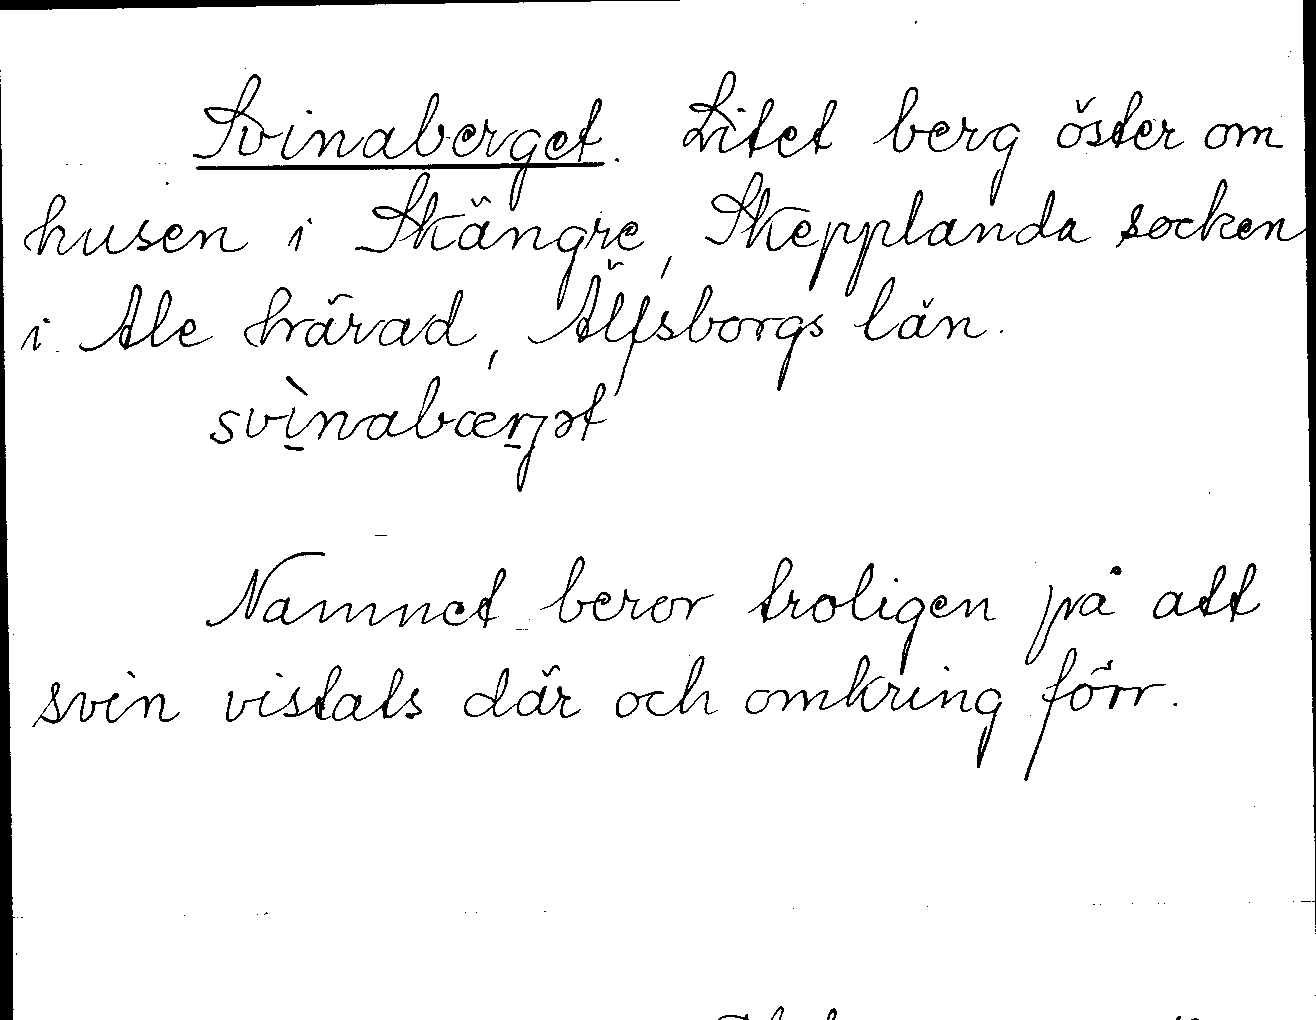 Svinaberget. Litet berg öster om
husen i Skängre, Skepplanda socken
i Ale härad, Älfsborgs län.
svì̱nabær̠jət
Namnet beror troligen på att
svin vistats där och omkring förr.